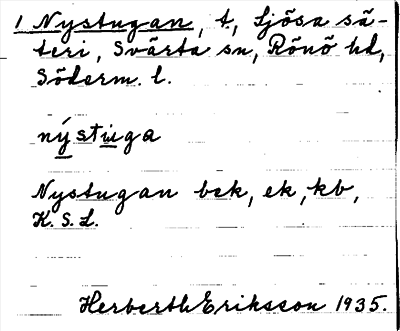 1 Nystugan, t., Ljösa sä-
teri, Svärta sn, Rönö hd,
Söderm. l.
nýstuga
Nystugan bek, ek, kb,
K. S. L.
Herberth Eriksson 1935.